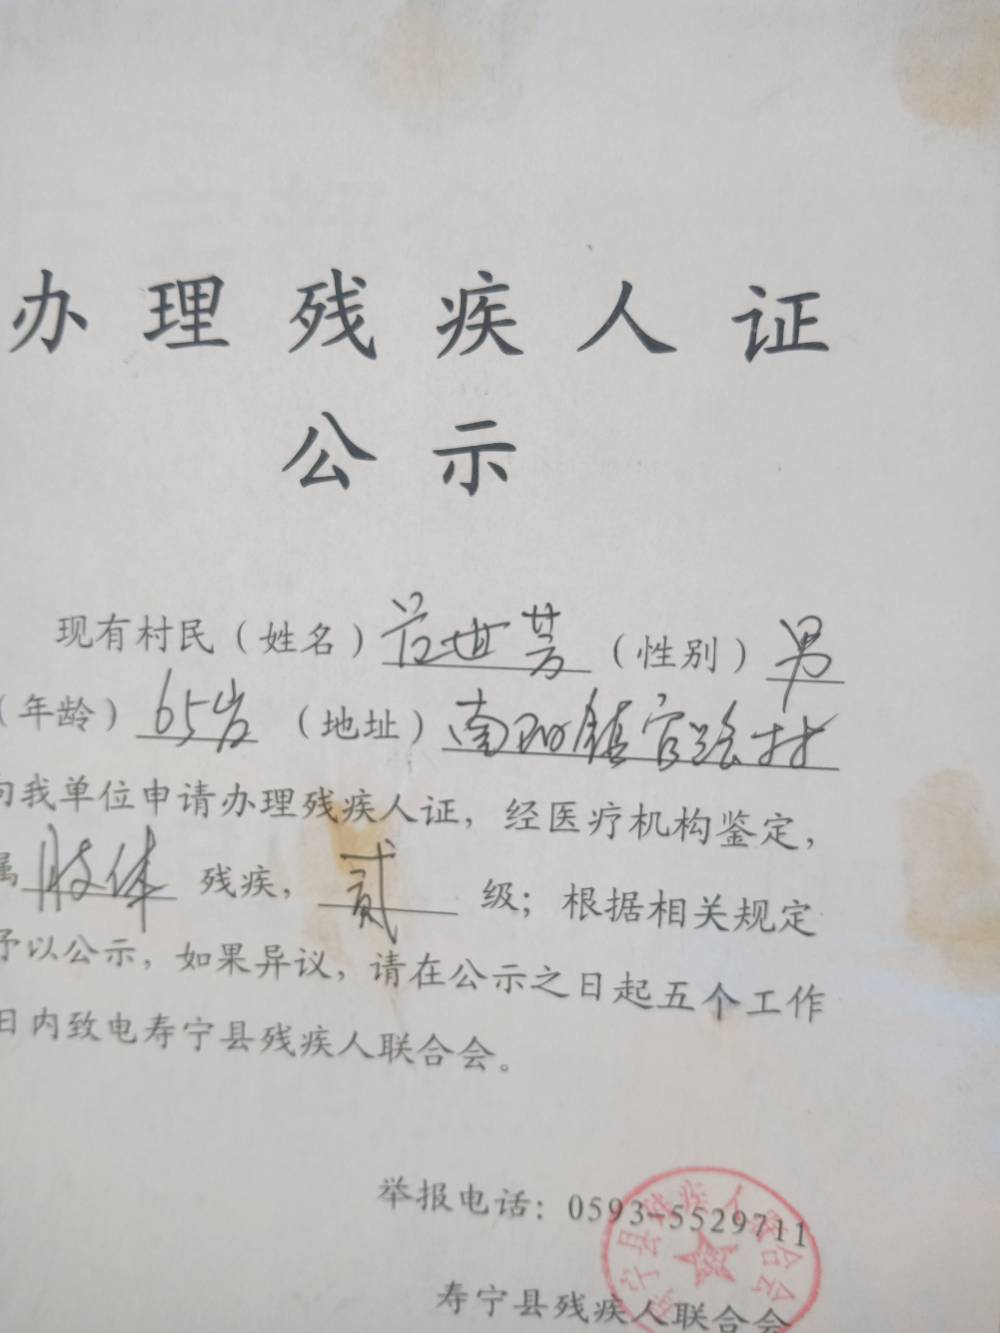 办理残疾人证
公示
现有村民（姓名）世芳（性别）男
（年龄）65岁（地址）南阳镇官路村
向我单位申请办理残疾人证，经医疗机构鉴定，
属肢体残疾，贰级；根据相关规定
予以公示，如果异议，请在公示之日起五个工作
日内致电寿宁县残疾人联合会。
举报电话：0593-5529711
寿宁县残疾人联合会
寿宁县残疾人联合会